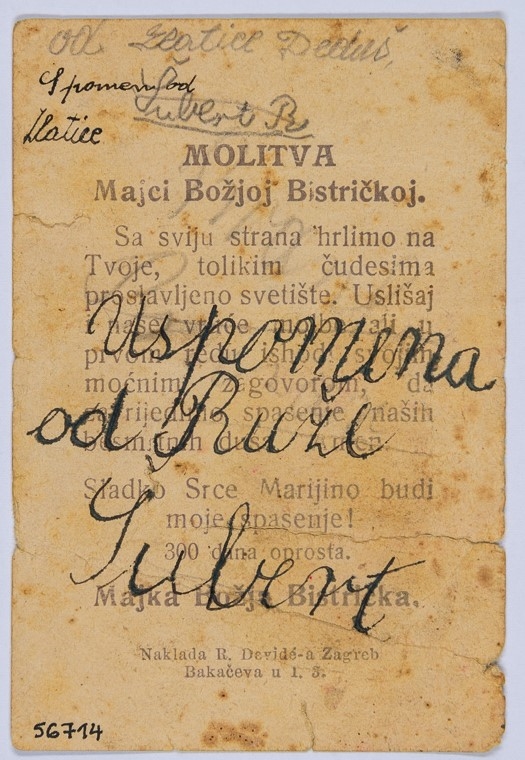 od Zlatice Deduš,
Spomen od
Šubert R
Zlatice
MOLITVA
Majci Božjoj Bistričkoj.
Sa sviju strana hrlimo na
Tvoje, tolikim čudesima
proslavljeno svetište. Uslišaj
i naše molbe ali u
Uspomena
prvom redu ishodi svojim
moćnim zagovorom, da
od Ruže
spasenje naših
Sladko Srce Marijino budi
moje spasenje!
300 dana oprosta.
Šubert
Majka Božja Bistrička.
Naklada R. Devidé-a Zagreb
Bakačeva u l. 3.
56714